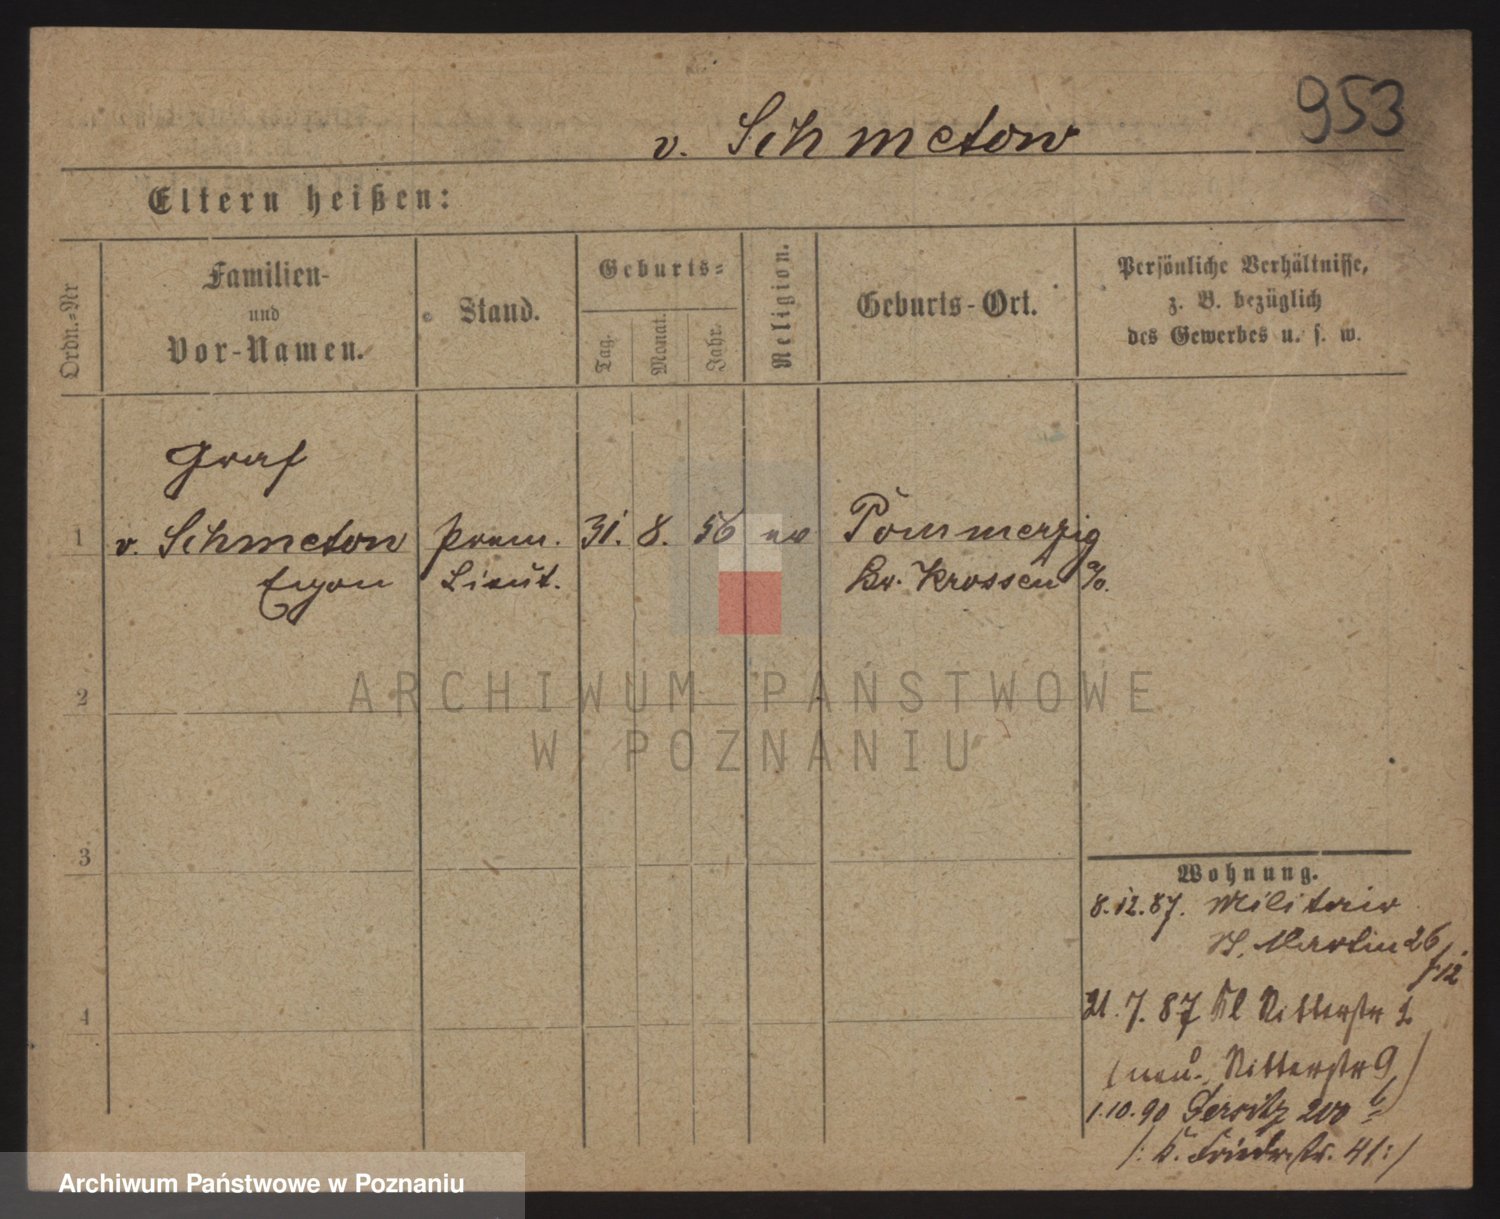 953
v. Schmetow
Eltern heißen:
Ordn.=Nr
Familien-
und
Vor-Namen.
Stand.
Geburts=
Tag.
Monat.
Jahr.
Religion.
Geburts-Ort.
Persönliche Verhältnisse,
z. B. bezüglich
des Gewerbes u. s. w.
Graf
1 v. Schmetow Prem. 31. 8. 56 ev Pommerzig
Egon Lieut. Kr. Krossen a/o.
2
ARCHIWUM PAŃSTWOWE
W POZNANIU
3
Wohnung.
8.12.87. Militair
St. Martin 26
f. 12
4
21.7.87 Kl Ritterstr 2
(neu. Ritterstr 9)
1.10.90 Jersitz 200 b
/: K. Friedr.str. 41:/
Archiwum Państwowe w Poznaniu